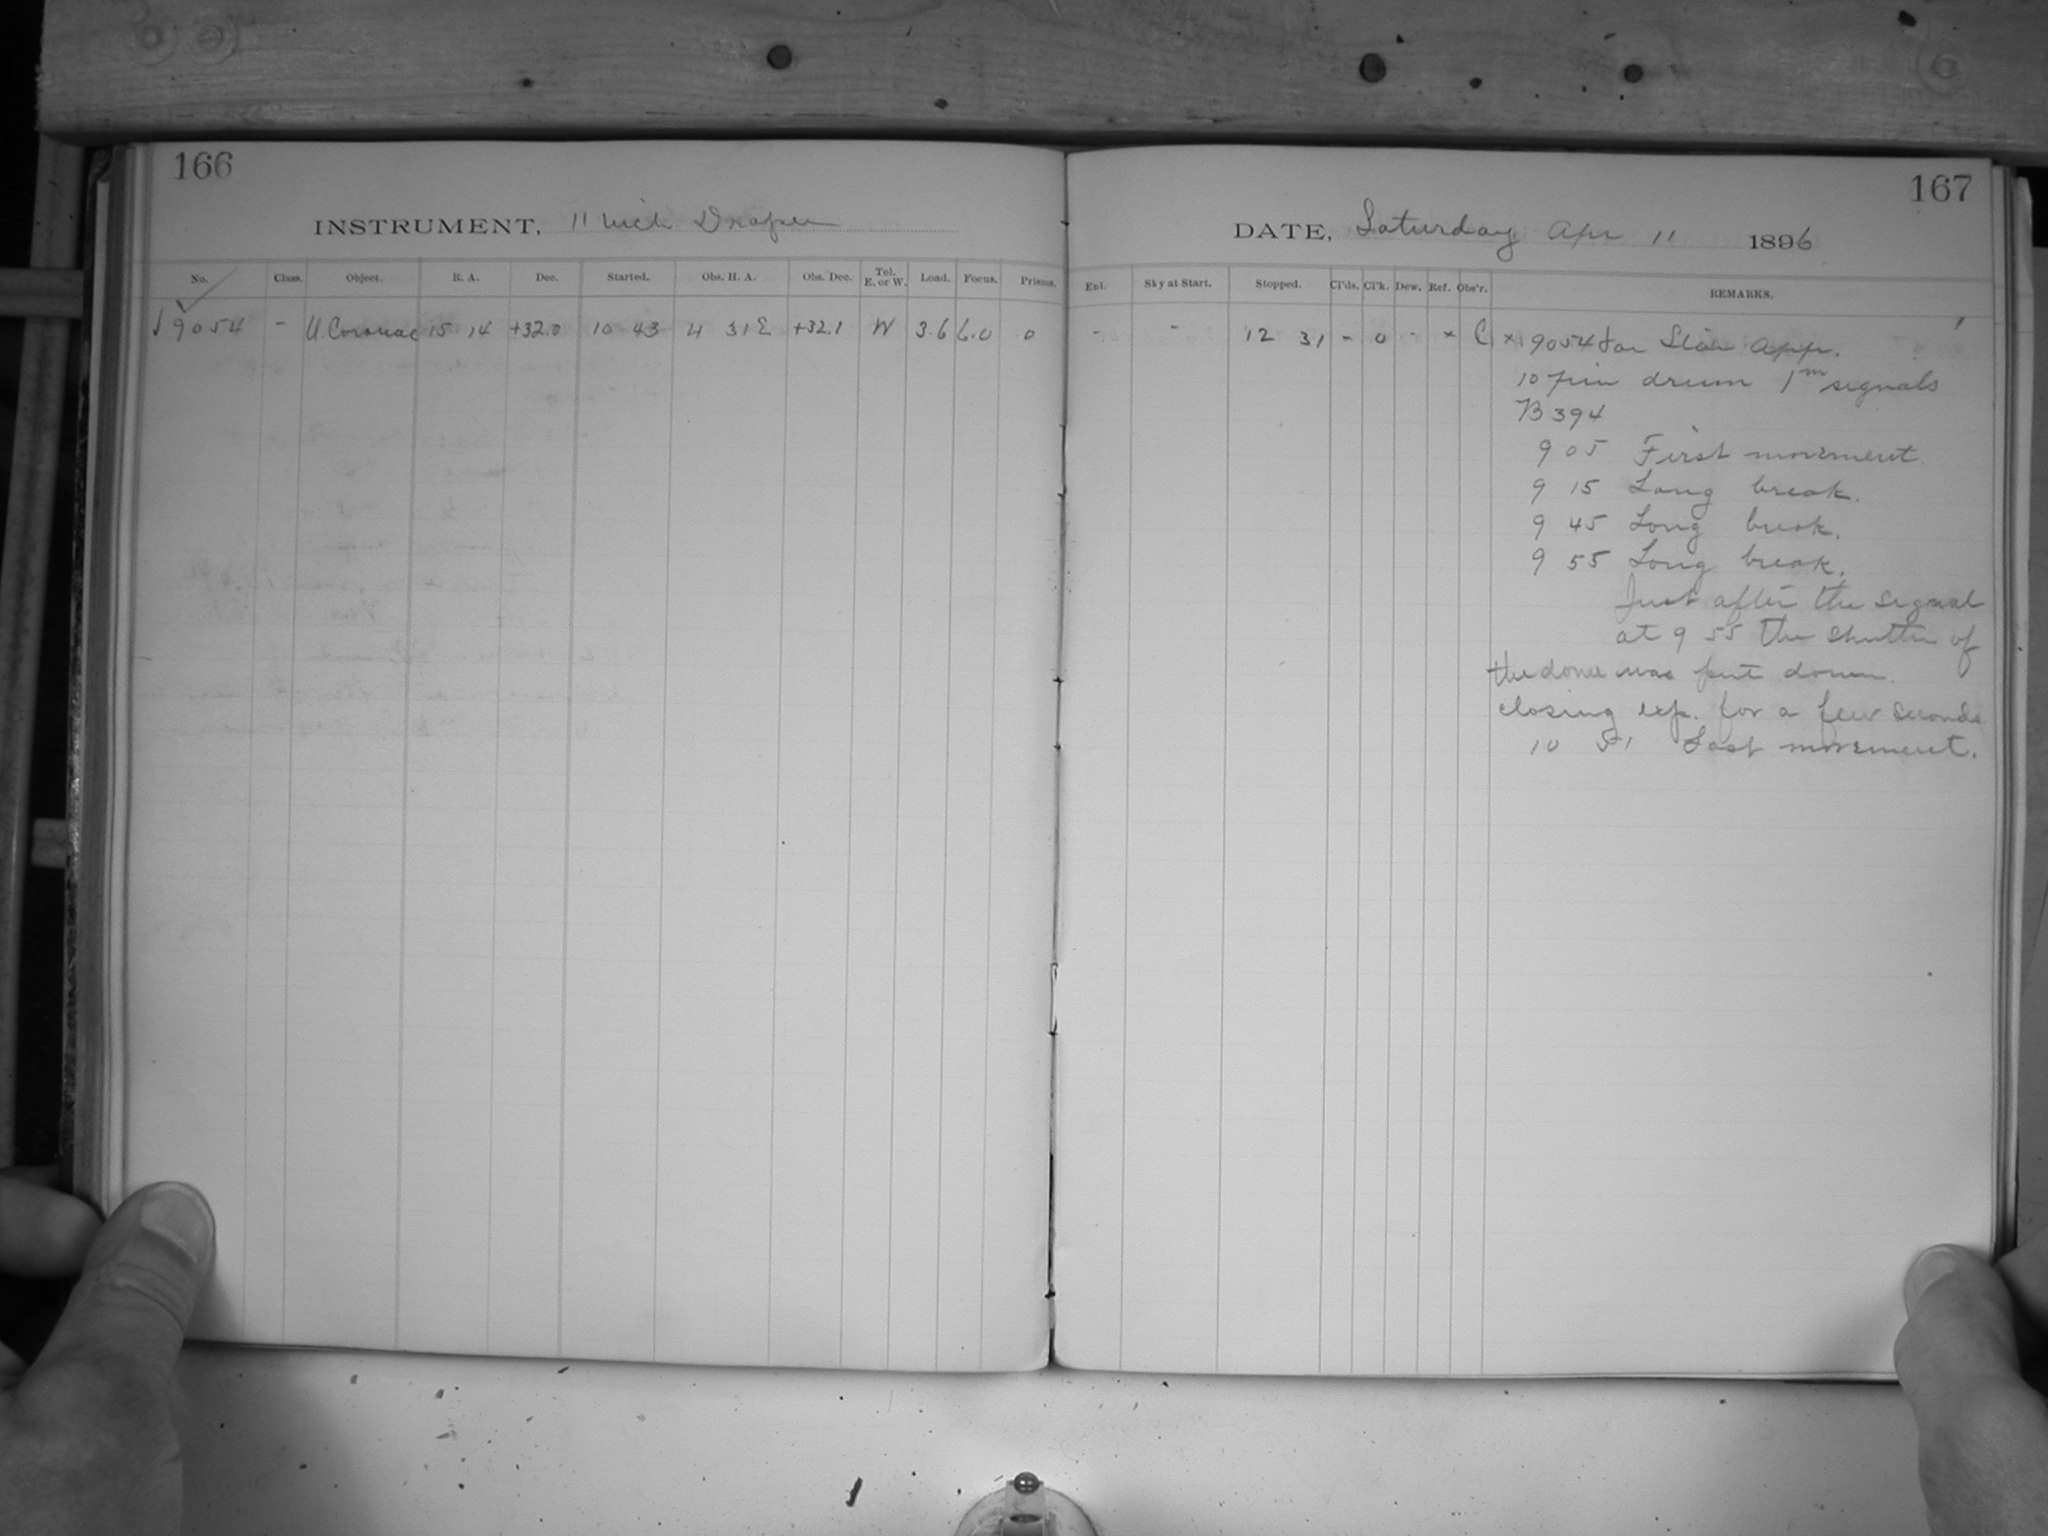 166
INSTRUMENT, 11 inch Draper
No. Class. Object. R. A. Dec. Started. Obs. H. A. Obs. Dec. Tel. E. or W. Load. Focus. Prisms.
9054 - U. Coronae 15 14 +32.0 10 43 4 31 E +32.1 W 3.6 6.0 0
167
DATE, Saturday Apr 11 1896
Enl. Sky at Start. Stopped. Cl'ds. Cl'k. Dew. Ref. Obs'r. REMARKS.
- - 12 31 - 0 - × C × 9054 for App.
10 pin drum 1m signals
B 394
9 05 First movement
9 15 Long break.
9 45 Long break.
9 55 Long break.
Just after the signal
at 9 55 the shutter of
the dome was put down
closing exp. for a few seconds
10 51 Last movement.